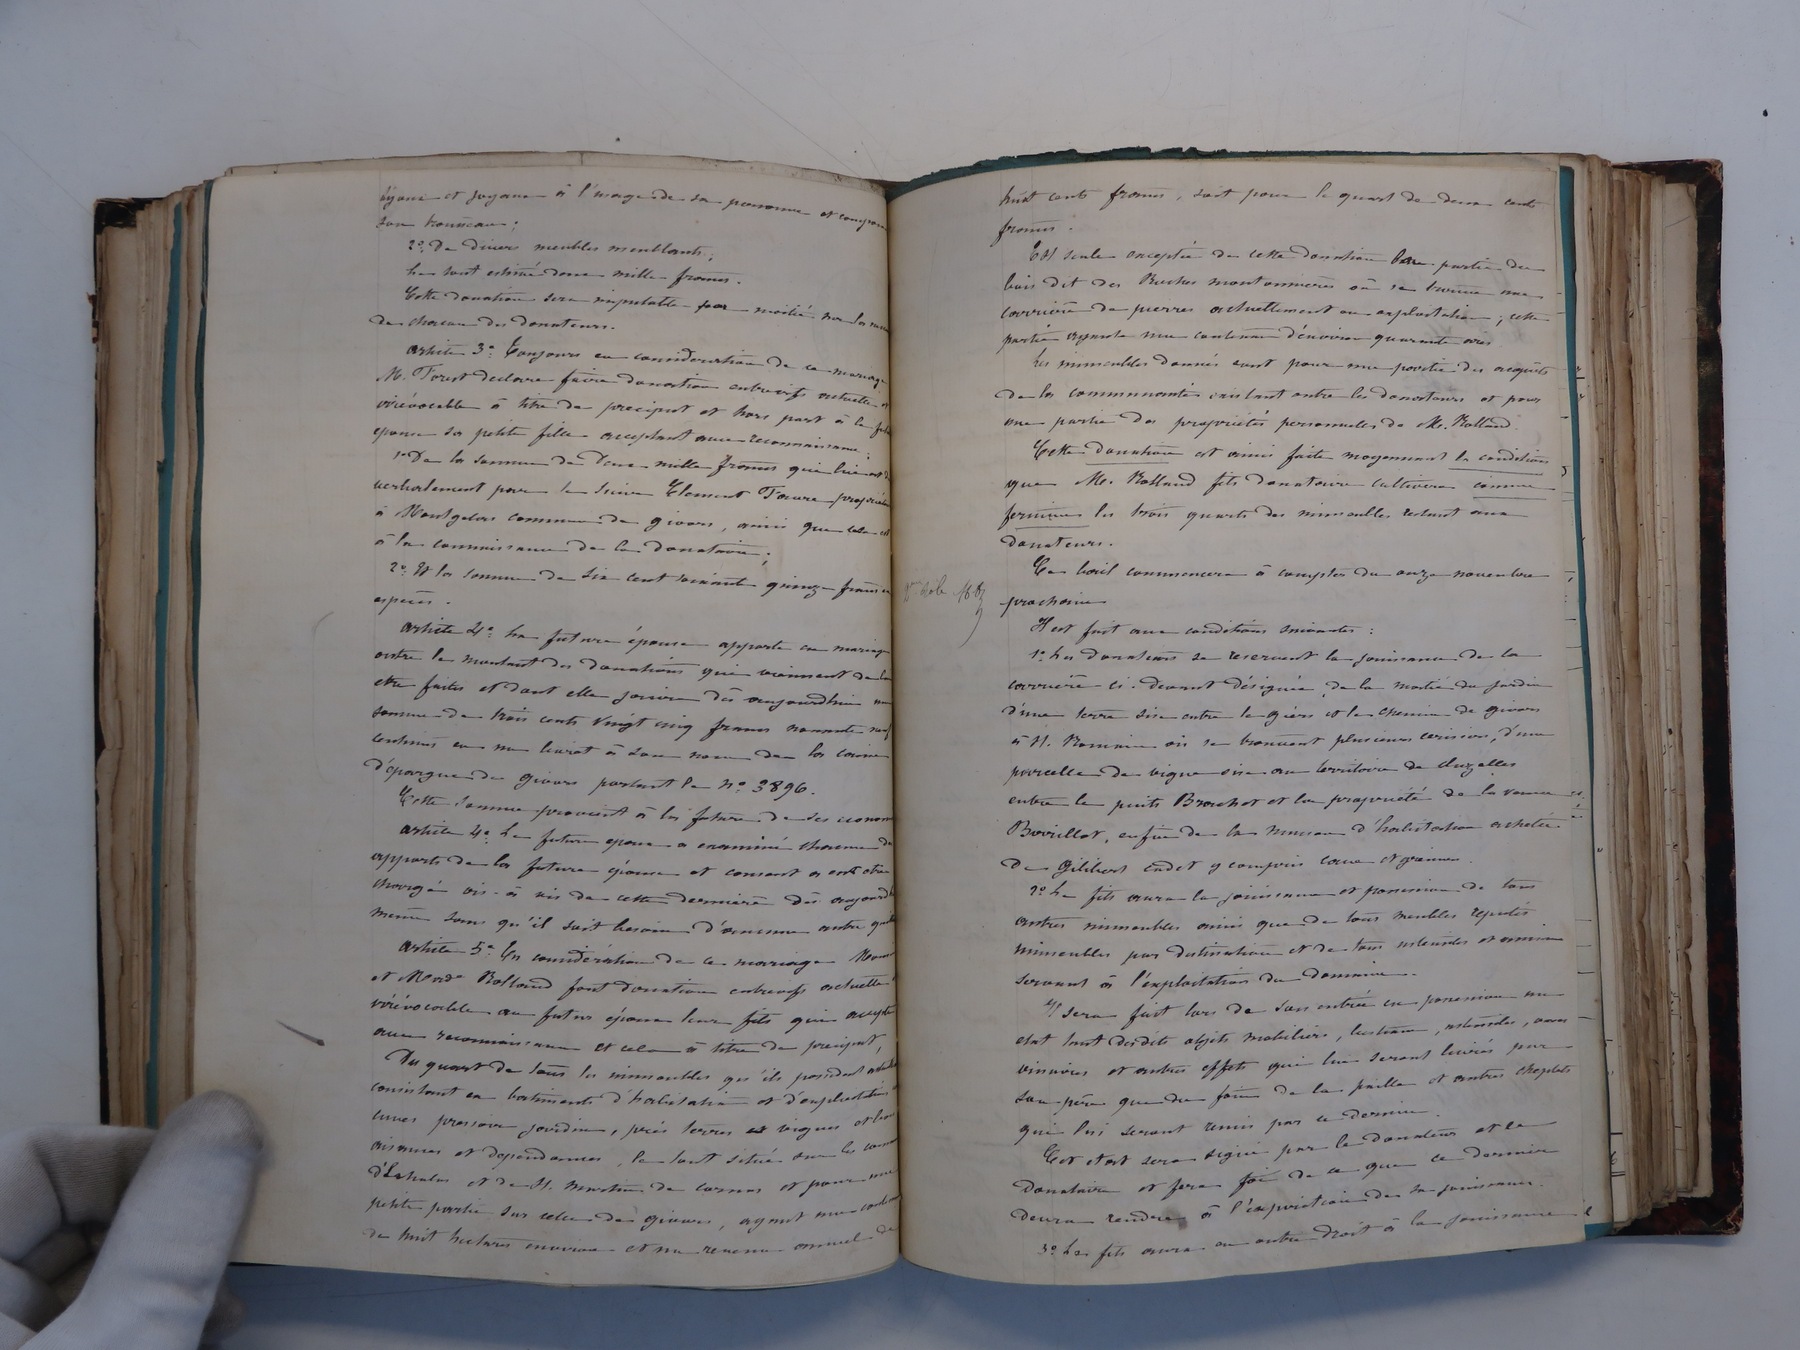 bijoux et joyaux à l'usage de sa personne et composant
son trousseau;
2° De divers meubles meublants;
Le tout estimé deux mille francs.
Cette donation sera imputable par moitié sur la succession
de chacun des donateurs.
Article 3e Toujours en considération de ce mariage
M. Forest declare faire donation entrevifs actuelle et
irrévocable à titre de preciput et hors part à la future
epouse sa petite fille acceptant avec reconnaissance:
1° De la somme de deux mille francs qui lui est due
verbalement par le sieur Clement Faure propriétaire
à Montgelas commune de givors, ainsi que cela est
à la connaissance de la donataire;
2° Et la somme de six cent soixante quinze francs en
espèces.
Article 4e La future épouse apporte en mariage
outre le montant des donations qui viennent de lui
etre faites et dont elle jouira dès aujourd'hui une
somme de trois cents vingt cinq francs nonante neuf
centimes en un livret à son nom de la caisse
d'épargne de givors portant le n° 3896.
Cette somme provient à la future de ses economies
Article 4e Le futur epoux a examiné chacun des
apports de la future épouse et consent à en être
chargé vis-à-vis de cette dernière dès aujourd'hui
même sans qu'il soit besoin d'aucune autre
Article 5e En considération de ce mariage Monsieur
et Made Rolland font donation entrevifs actuelle
irrévocable au futur époux leur fils qui accepte
avec reconnaissance et cela à titre de preciput,
Du quart de tous les immeubles qu'ils possèdent
consistant en batiments d'habitation et d'exploitation
cuves pressoir jardin, près terres et vignes et bois
aisances et dependances, le tout situé sur les communes
d'Echalas et de St. Martin de cornas et pour une
petite partie sur celle de givors, ayant une contenance
de huit hectares environ et un revenu annuel de
huit cents francs, soit pour le quart de deux cents
francs.
Est seule exceptée de cette donation la partie du
bois dit des Ruches où se trouve une
carrière de pierres actuellement en exploitation; cette
partie ayant une contenance d'environ quarante ares.
Les immeubles donnés sont pour une partie des acquêts
de la communauté existant entre les donateurs et pour
une partie des propriétés personnelles de M. Rolland.
Cette donation est ainsi faite moyennant la condition
que M. Rolland fils donataire cultivera comme
fermier les trois quarts des immeubles restant aux
donateurs.
Ce bail commencera à compter du onze novembre
prochain
Il est fait aux conditions suivantes:
1° Les donateurs se reservent la jouissance de la
carrière ci-devant désignée, de la moitié du jardin
d'une terre sise entre le giers et le chemin de givors
à St. Romain où se trouvent plusieurs cerisiers, d'une
parcelle de vigne sise au territoire de
entre le puits Brachet et la propriété de la veuve
Bovillot, enfin de la maison d'habitation achetée
de Gilibert cadet y compris cour et
2° Le fils aura la jouissance et possession de tous
autres immeubles ainsi que de tous meubles reputés
immeubles par destination et de tous ustensiles et
servant à l'exploitation du domaine.
Il sera fait lors de son entrée en possession un
etat tant desdits objets mobiliers, bestiaux, ustensiles, vases
vinaires et autres effets qui lui seront livrés par
son père que du foin de la paille et autres cheptels
qui lui seront remis par ce dernier.
Cet etat sera signé par le donateur et le
donataire et fera foi de ce que ce dernier
devra rendre à l'expiration de sa jouissance.
3° Le fils aura en outre droit à la jouissance